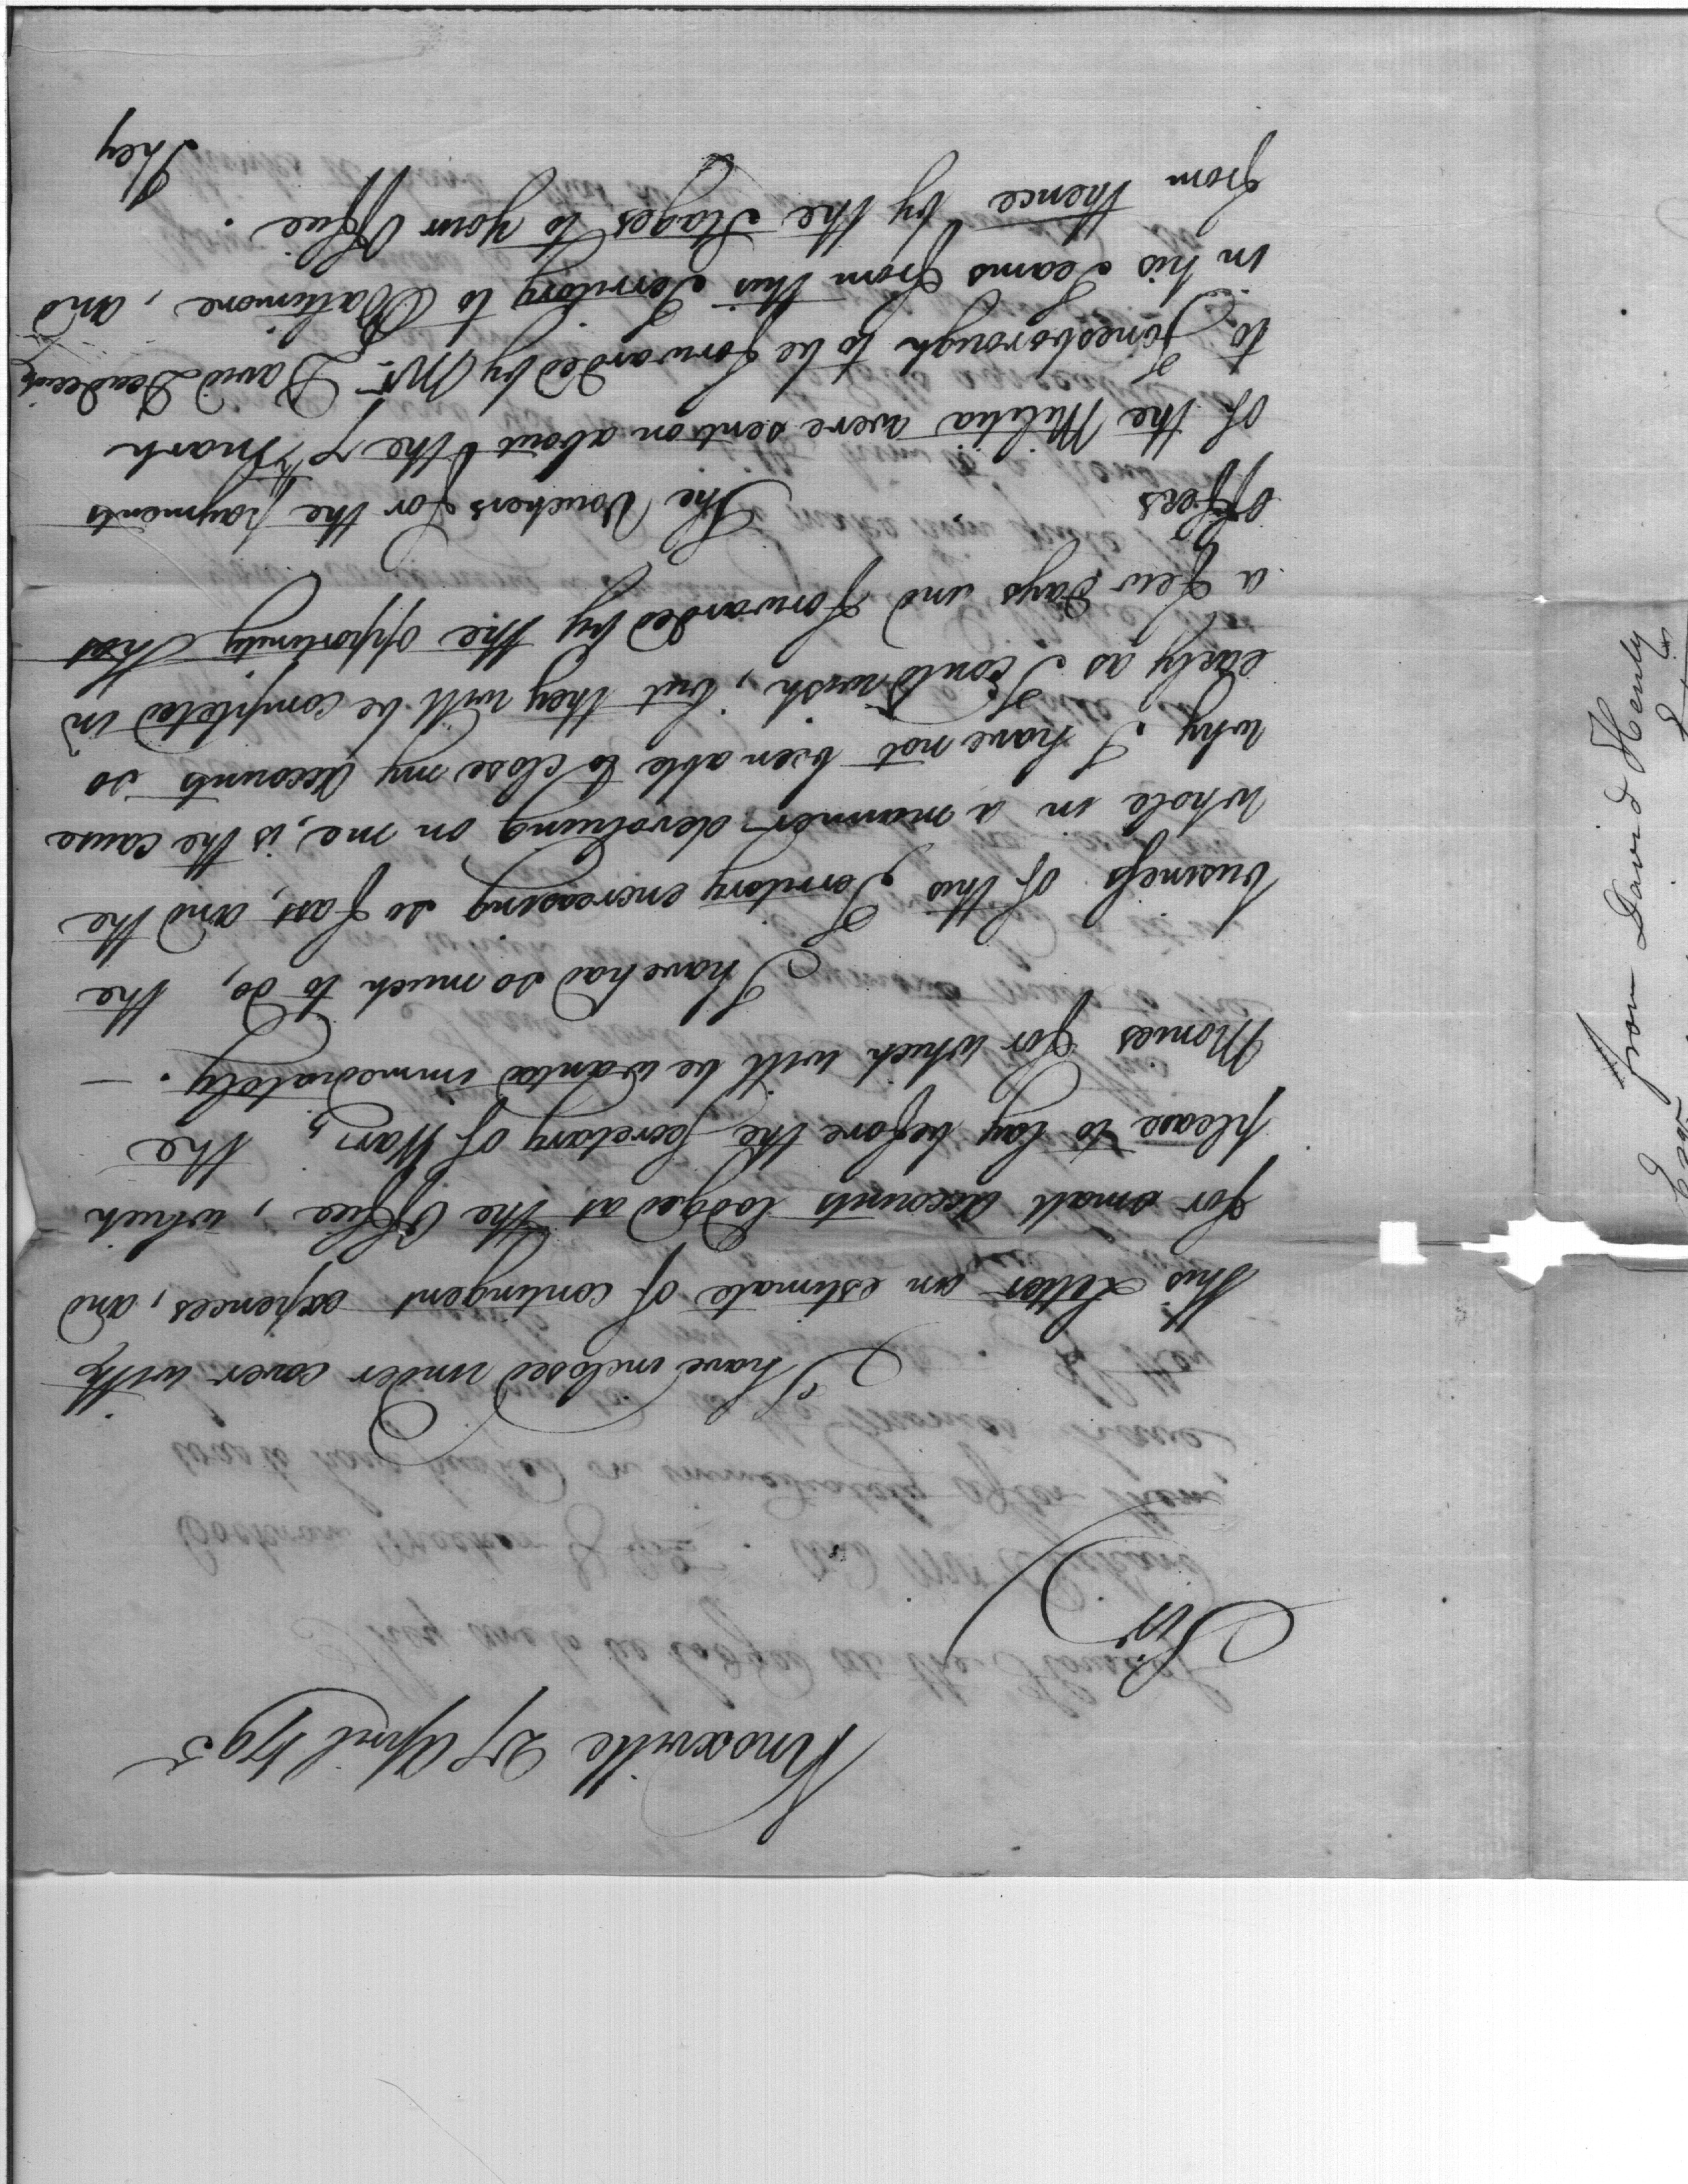 Knoxville 27 April 1795
Sir
I have inclosed under cover with
this Letter an estimate of contingent expences, and
for small accounts lodged at the Office, which
please to lay before the Secretary of War, the
Monies for which will be wanted immediately. —
I have had so much to do, the
business of this Territory encreasing so fast, and the
whole in a manner devolving on me, is the cause
why I have not been able to close my accounts so
early as I could wish, but they will be completed in
a few days and forwarded by the opportunity that
offers
The Vouchers for the payments
of the Militia were sent on about the 7th March
to Jonesborough to be forwarded by Mr. David Deaderick
in his Teams from this Territory to Baltimore, and
from thence by the Stages to your Office.
They
from David Henly